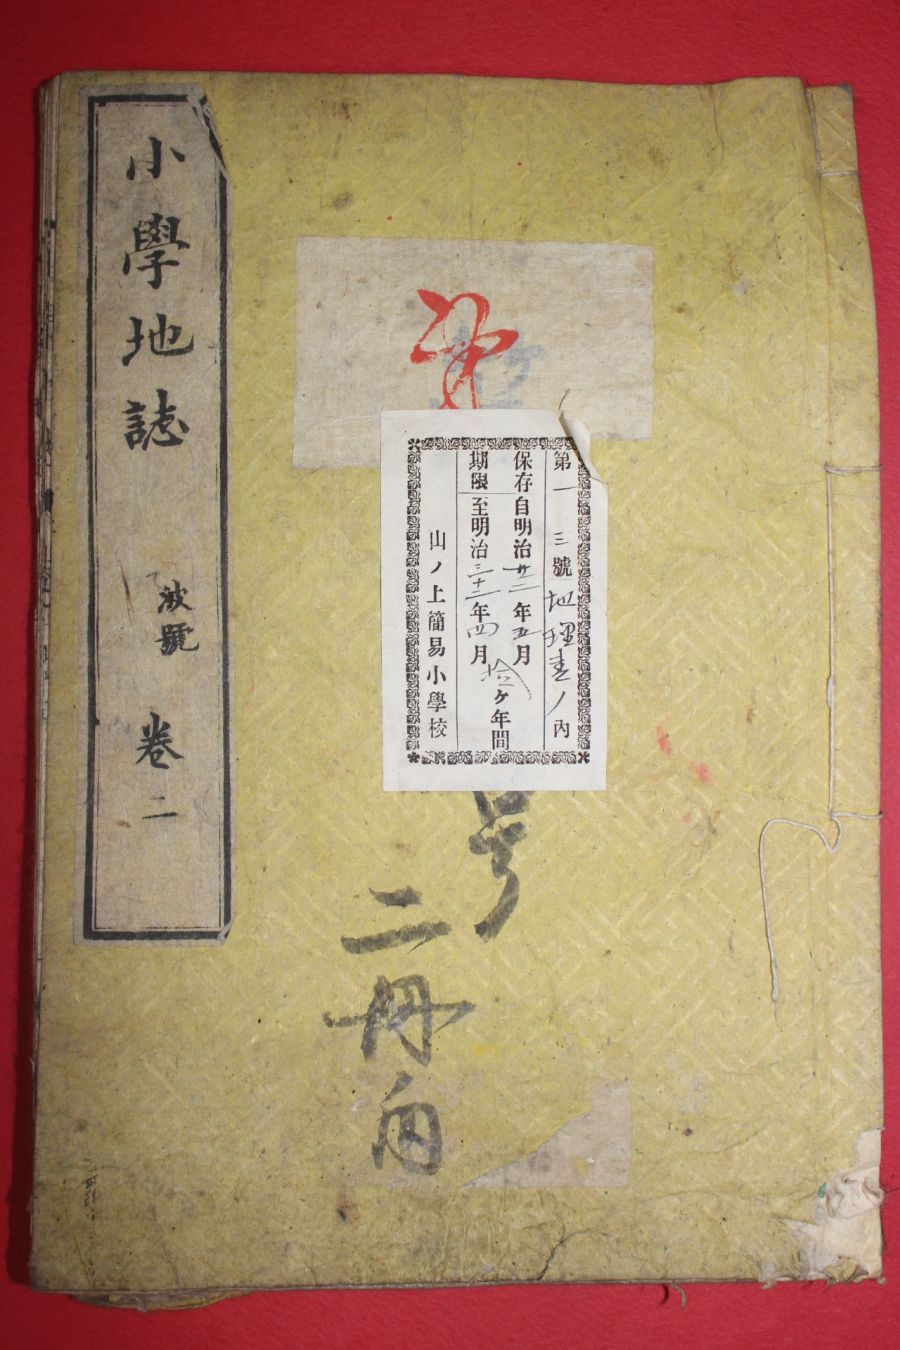 小學地誌 波號 卷二
第一三號 地理書ノ內
保存自明治廿二年五月
期限至明治三十二年四月
拾ヶ年間
山ノ上簡易小學校
号
二冊內